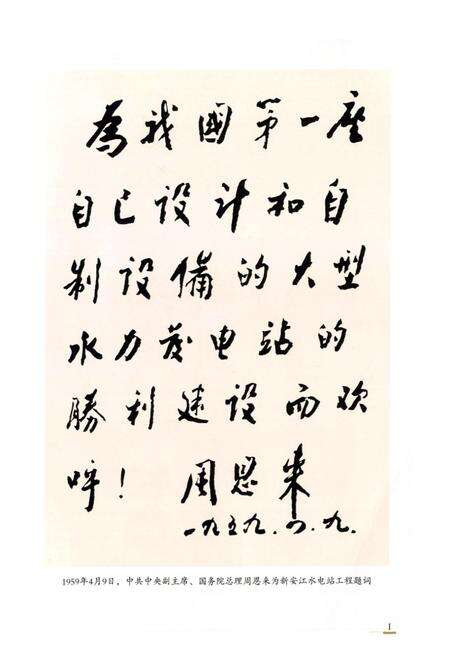 為我國第一座
自己设计和自
制设備的大型
水力发电站的
勝利建设而欢
呼！ 周恩来
一九五九.四.九.
1959年4月9日，中共中央副主席、国务院总理周恩来为新安江水电站工程题词
1